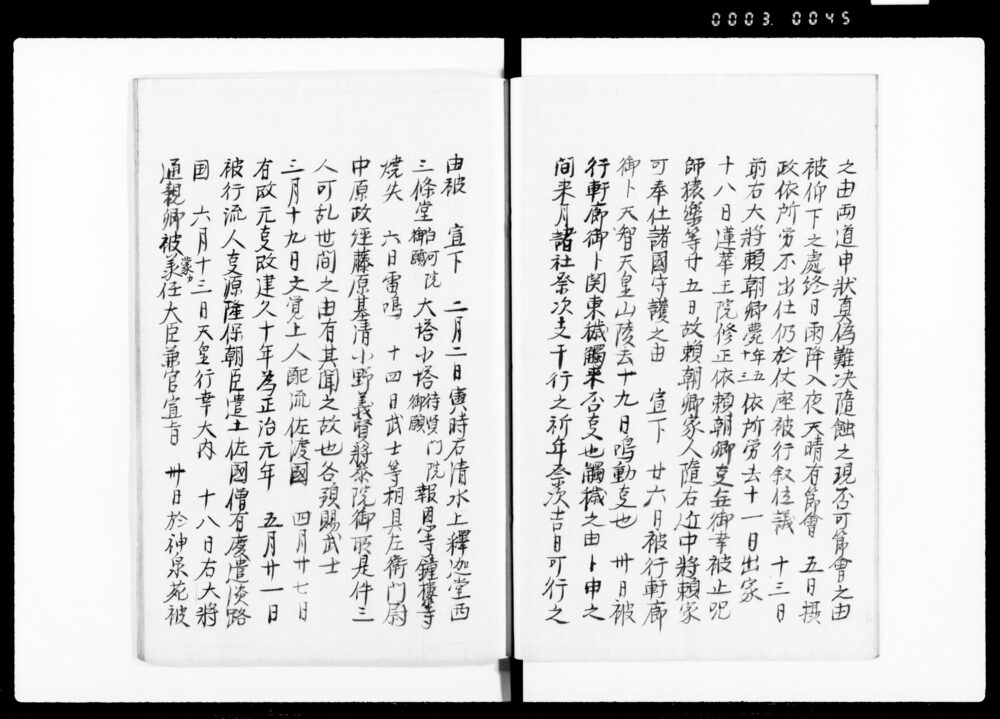 0003. 0045
之由両道申状真偽難决随蝕之現否可節會之由
被仰下之處終日雨降入夜天晴有節會　五日摂
政依所労不出仕仍於仗座被行叙位議　十三日
前右大将頼朝卿薨年五十三依所労去十一日出家
十八日蓮華王院修正依頼朝卿㕝無御幸被止咒
師猿樂等廿五日故頼朝卿家人隨右近中将頼家
可奉仕諸國守護之由　宣下　廿六日被行軒廊
御卜天智天皇山陵去十九日鳴動㕝也　卅日被
行軒廊御卜関東穢觸来否㕝也觸穢之由卜申之
間来月諸社祭次支干行之祈年祭次吉日可行之
由被　宣下　二月二日寅時石清水上釋迦堂西
三條堂白河院御願大塔小塔待賢門院御願報恩寺鐘樓等
燒失　六日雷鳴　十四日武士等相具左衛門尉
中原政経藤原基清小野義賢将参院御所是件三
人可乱世間之由有其聞之故也各預賜武士
三月十九日文覚上人配流佐渡國　四月廿七日
有改元㕝改建久十年為正治元年　五月廿一日
被行流人㕝源隆保朝臣遣土佐國僧有慶遣淡路
国　六月十三日天皇行幸大内　十八日右大将
通親卿被兼任大臣兼官宣旨　卅日於神泉苑被